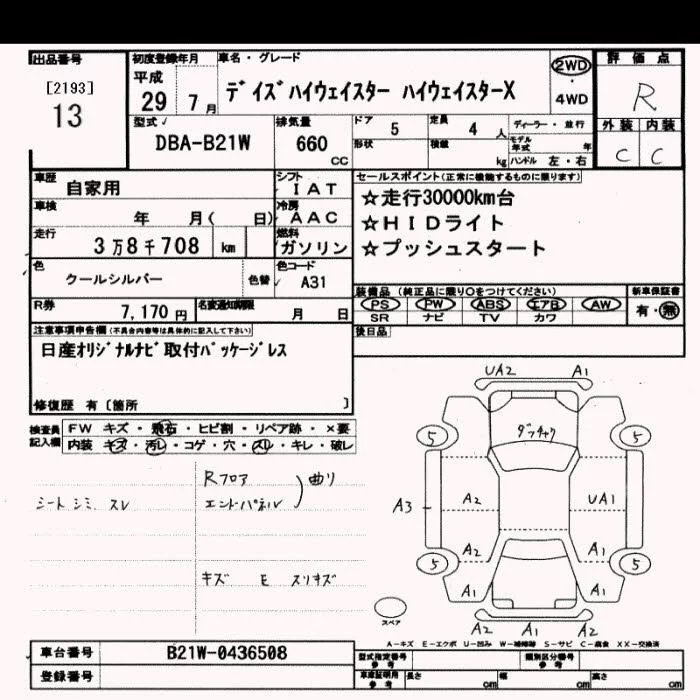 出品番号
[2193]
13
初度登録年月
平成
29 7月
車名・グレード
デイズハイウェイスター ハイウェイスターX
2WD
・
4WD
評価点
R
外装 内装
C C
型式
DBA-B21W
排気量
660
CC
ドア 5
定員 4 人
形状
積載 kg
ディーラー・並行
モデル年式 年
ハンドル 左・右
車歴
自家用
シフト
IAT
車検
年 月( 日)
冷房
AAC
走行
3万8千708 km
燃料
ガソリン
色
クールシルバー
色替
色コード
A31
R券
7,170円
名変通知期限
月 日
セールスポイント(正常に機能するものに限ります)
☆走行30000km台
☆HIDライト
☆プッシュスタート
装備品 (純正品に限り○をつけてください)
新車保証書
PS PW ABS エアB AW
SR ナビ TV カワ
有・無
後日品
注意事項申告欄(不具合内容等は具体的に記入して下さい)
日産オリジナルナビ取付パッケージレス
修復歴 有〔箇所 〕
検査員記入欄
FW キズ・飛石・ヒビ割・リペア跡・×要
内装 キズ・汚レ・コゲ・穴・スレ・キレ・破レ
シートシミ スレ
Rフロア
エンドパネル
曲り
キズ E スリキズ
UA2 A1
ダッチャク
5 5
A2 UA1
A3
A2 A1
5 5
A1 A1
A2 A1 A2
スペア
A-キズ E-エクボ U-凹み W-補修跡 S-サビ C-腐食 XX-交換済
車台番号
B21W-0436508
登録番号
型式指定番号
参考
類別区分番号
参考
車庫証明用
参考
長さ cm
幅 cm
高さ cm